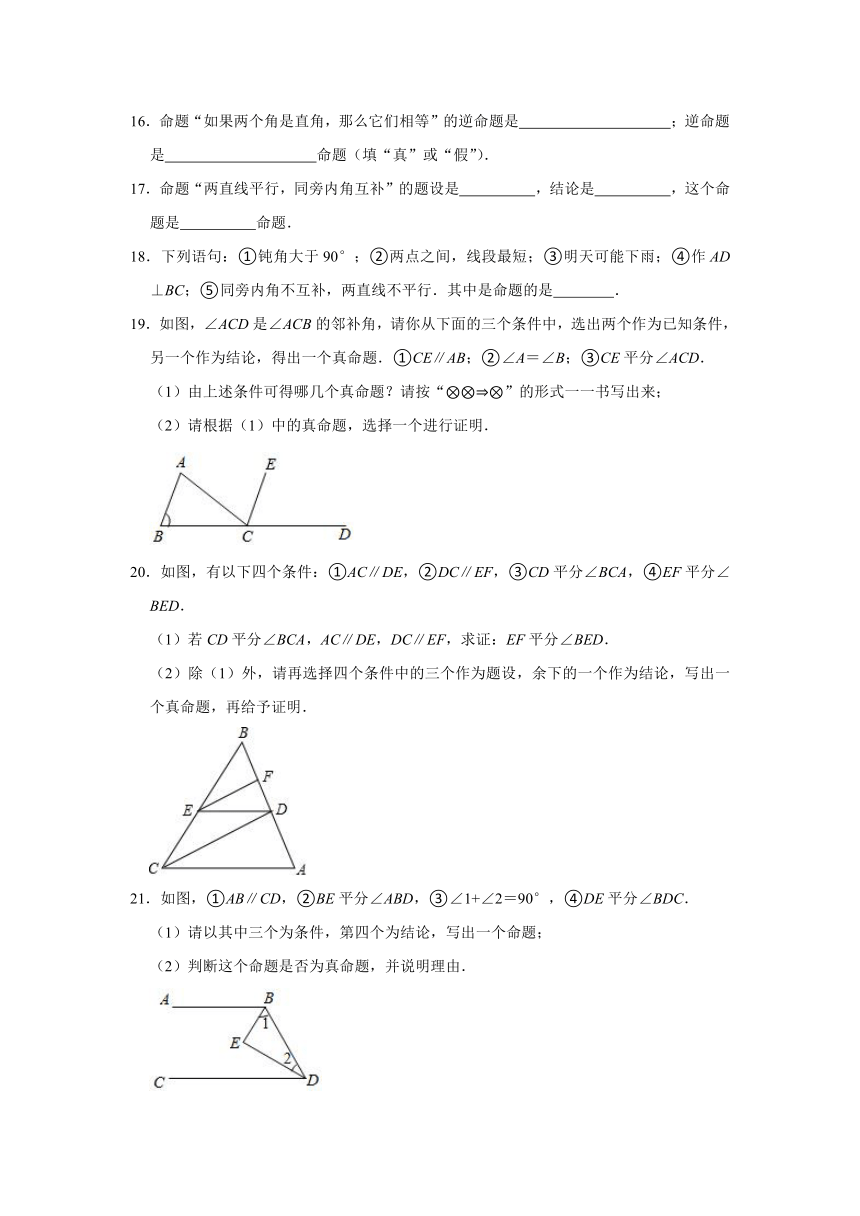 16．命题“如果两个角是直角，那么它们相等”的逆命题是　　　　　　　　；逆命题
是　　　　　　　　命题（填“真”或“假”）．
17．命题“两直线平行，同旁内角互补”的题设是　　　　，结论是　　　　，这个命
题是　　　　命题．
18．下列语句：①钝角大于90°；②两点之间，线段最短；③明天可能下雨；④作AD
⊥BC；⑤同旁内角不互补，两直线不平行．其中是命题的是　　　　．
19．如图，∠ACD是∠ACB的邻补角，请你从下面的三个条件中，选出两个作为已知条件，
另一个作为结论，得出一个真命题．①CE∥AB；②∠A＝∠B；③CE平分∠ACD．
（1）由上述条件可得哪几个真命题？请按“⊗⊗⇒⊗”的形式一一书写出来；
（2）请根据（1）中的真命题，选择一个进行证明．
A E
B C D
20．如图，有以下四个条件：①AC∥DE，②DC∥EF，③CD平分∠BCA，④EF平分∠
BED．
（1）若CD平分∠BCA，AC∥DE，DC∥EF，求证：EF平分∠BED．
（2）除（1）外，请再选择四个条件中的三个作为题设，余下的一个作为结论，写出一
个真命题，再给予证明．
B
F
E D
C A
21．如图，①AB∥CD，②BE平分∠ABD，③∠1+∠2＝90°，④DE平分∠BDC．
（1）请以其中三个为条件，第四个为结论，写出一个命题；
（2）判断这个命题是否为真命题，并说明理由．
A B
1
E
2
C D